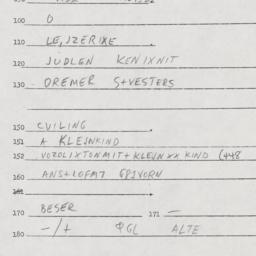 100 O
110 LEJZERIXE
120 JUDLEN KENIXNIT
130 DREMER S+VESTERS
150 CVILING
151 A KLEJNKIND
152 VOZOLIXTONMIT+KLEJNXXKIND (448
160
161
170 BESER 171 —
180 -/+ ALTE